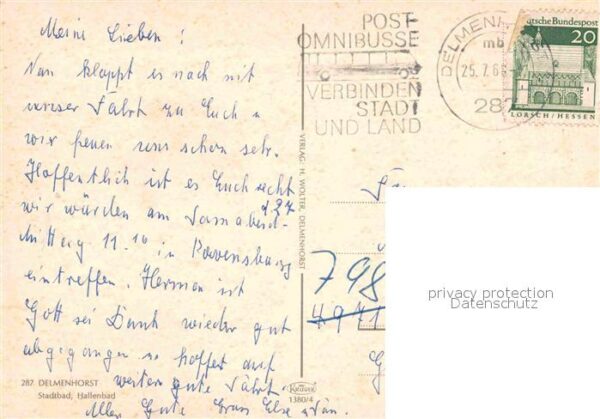 Meine Lieben!
Nun klappt es noch mit
unser Fahrt zu Euch u
wir freuen uns schon sehr.
Hoffentlich ist es Euch recht
wir würden am Sonnabend
Mittag 11.10 in Ravensburg
eintreffen. Herman ist
Gott sei Dank wieder gut
abgegangen so hoffet auf
weitere gute Fahrt.
Alles Gute Eure Else
287 DELMENHORST
Stadtbad, Hallenbad
VERLAG: H. WOLTER, DELMENHORST
Krüger
1380/4
POST
OMNIBUSSE
VERBINDEN
STADT
UND LAND
DELMENH
mb
25.7.66
287
Deutsche Bundespost
20
LORSCH/HESSEN
798
privacy protection
Datenschutz